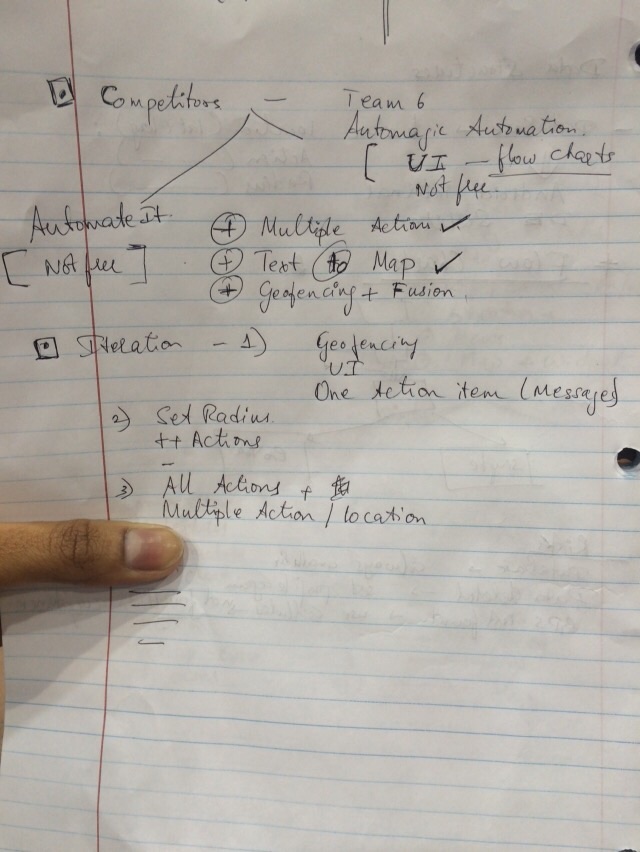 Competitors — Team 6
Automagic Automation.
[ UI — flow charts
Not free.
Automate It.
[ Not free ]
(+) Multiple Action ✓
(+) Text to Map ✓
(+) Geofencing + Fusion.
Iteration - 1) Geofencing
UI
One Action item (Messages)
2) Set Radius.
++ Actions
-
3) All Actions +
Multiple Action / location